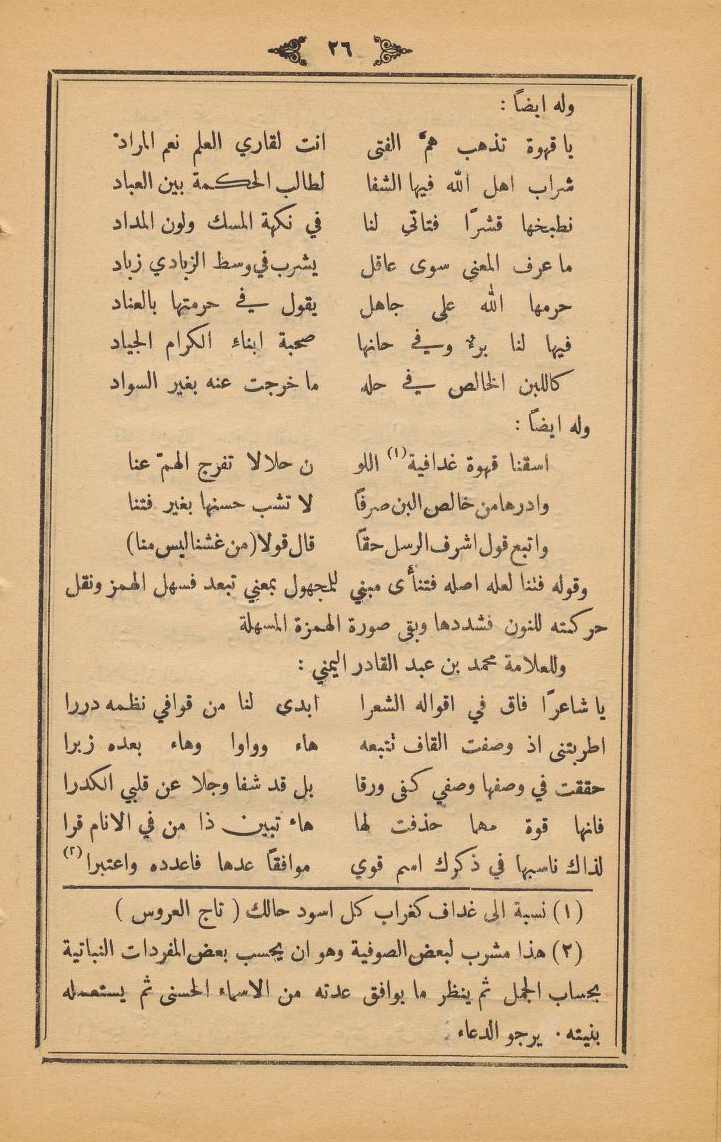 ٢٦
وله ايضاً :
يا قهوة تذهب همّ الفتى انت لقاري العلم نعم المراد
شراب اهل الله فيها الشفا لطالب الحكمة بين العباد
نطبخها قشرًا فتاتي لنا في نكهة المسك ولون المداد
ما عرف المعنى سوى عاقل يشرب في وسط الزبادي زباد
حرمها الله على جاهل يقول في حرمتها بالعناد
فيها لنا برء وفي حانها صحبة ابناء الكرام الجياد
كاللبن الخالص في حله ما خرجت عنه بغير السواد
وله ايضاً :
اسقنا قهوة غدافية (١) اللو ن حلالا تفرج الهمّ عنا
وادرها من خالص البن صرفاً لا تشب حسنها بغير فتنا
واتبع قول اشرف الرسل حقاً قال قولا (من غشنا ليس منا)
وقوله فتنا لعله اصله فتنأى مبني للمجهول بمعني تبعد فسهل الهمز ونقل
حركته للنون فشددها وبقى صورة الهمزة المسهلة
وللعلامة محمد بن عبد القادر اليمني :
يا شاعرًا فاق في اقواله الشعرا ابدى لنا من قوافي نظمه دررا
اطربتنى اذ وصفت القاف تتبعه هاء وواوا وهاء بعده زبرا
حققت في وصفها وصفي كفى ورقا بل قد شفا وجلا عن قلبي الكدرا
فانها قوة مهما حذفت لها هاء تبين ذا من في الانام قرا
لذاك ناسبها في ذكرك اسم قوي موافقاً عدها فاعدده واعتبرا (٢)
(١) نسبة الى غداف كغراب كل اسود حالك ( تاج العروس )
(٢) هذا مشرب لبعض الصوفية وهو ان يحسب بعض المفردات النباتية
بحساب الجمل ثم ينظر ما يوافق عدته من الاسماء الحسنى ثم يستعمله
بنيته . يرجو الدعاء .